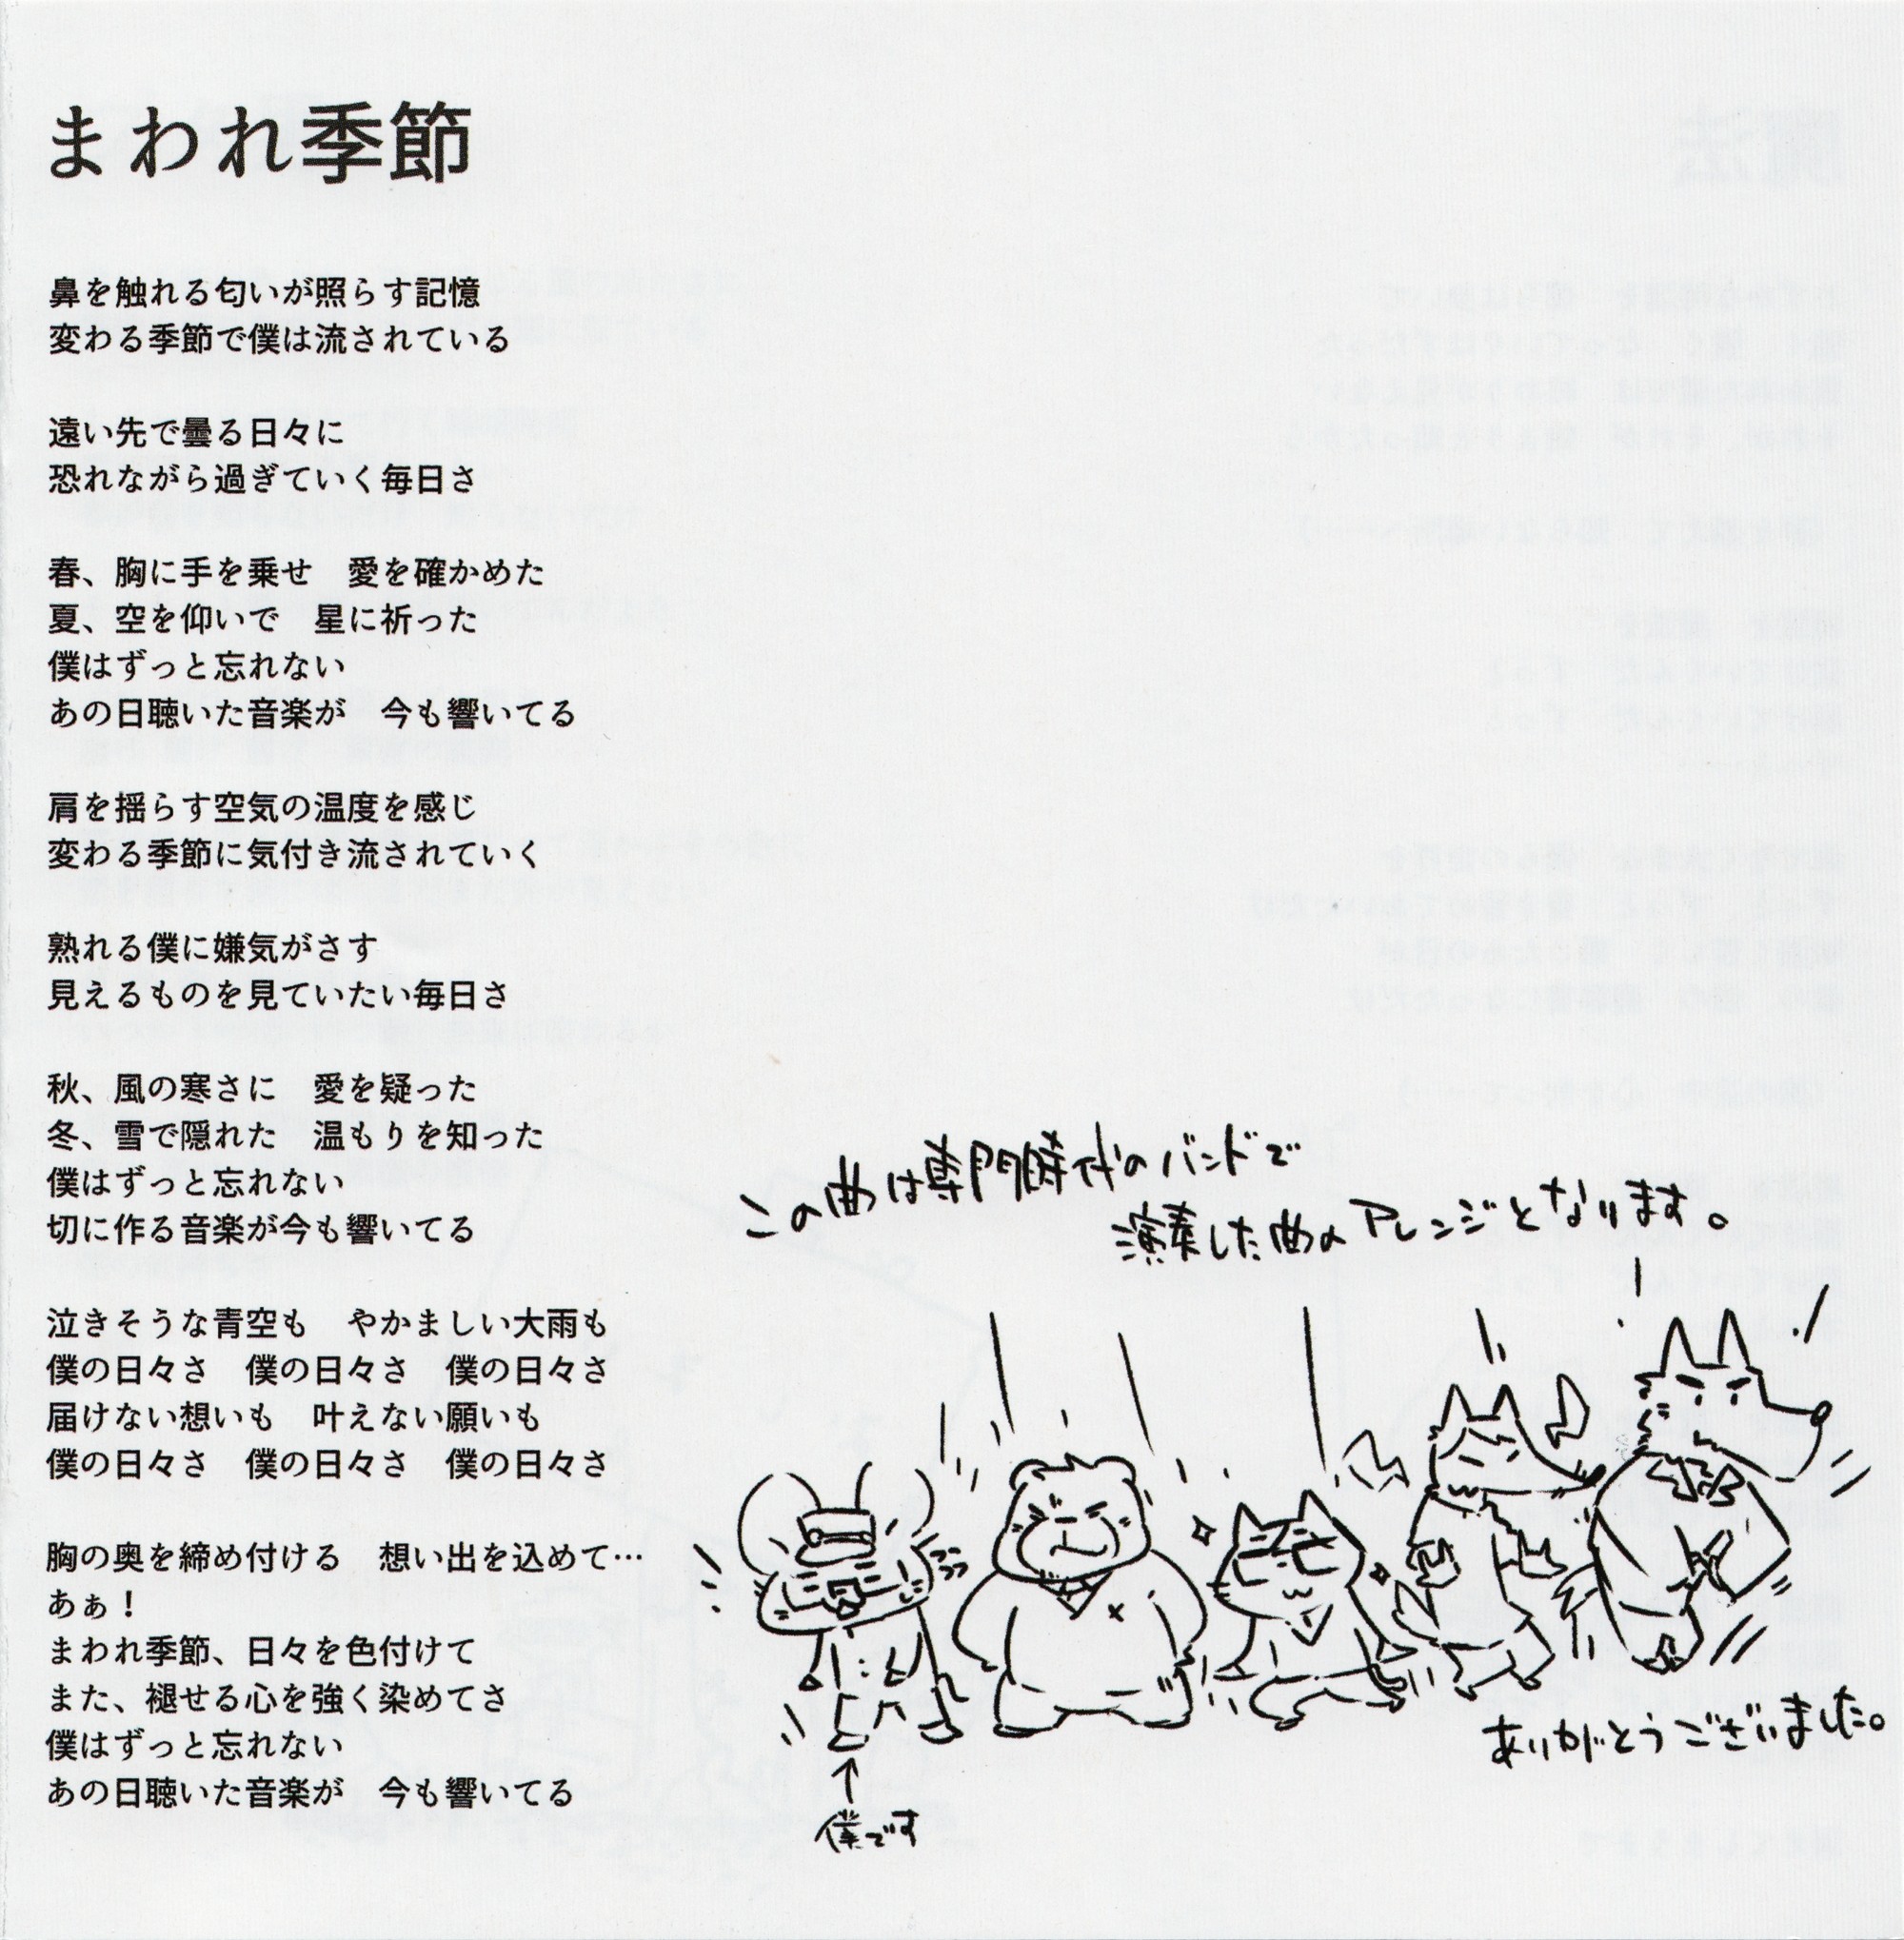 まわれ季節
鼻を触れる匂いが照らす記憶
変わる季節で僕は流されている
遠い先で曇る日々に
恐れながら過ぎていく毎日さ
春、胸に手を乗せ　愛を確かめた
夏、空を仰いで　星に祈った
僕はずっと忘れない
あの日聴いた音楽が　今も響いてる
肩を揺らす空気の温度を感じ
変わる季節に気付き流されていく
熟れる僕に嫌気がさす
見えるものを見ていたい毎日さ
秋、風の寒さに　愛を疑った
冬、雪で隠れた　温もりを知った
僕はずっと忘れない
切に作る音楽が今も響いてる
泣きそうな青空も　やかましい大雨も
僕の日々さ　僕の日々さ　僕の日々さ
届けない想いも　叶えない願いも
僕の日々さ　僕の日々さ　僕の日々さ
胸の奥を締め付ける　想い出を込めて…
あぁ！
まわれ季節、日々を色付けて
また、褪せる心を強く染めてさ
僕はずっと忘れない
あの日聴いた音楽が　今も響いてる
この曲は専門時代のバンドで
演奏した曲のアレンジとなります。
ありがとうございました。
僕です